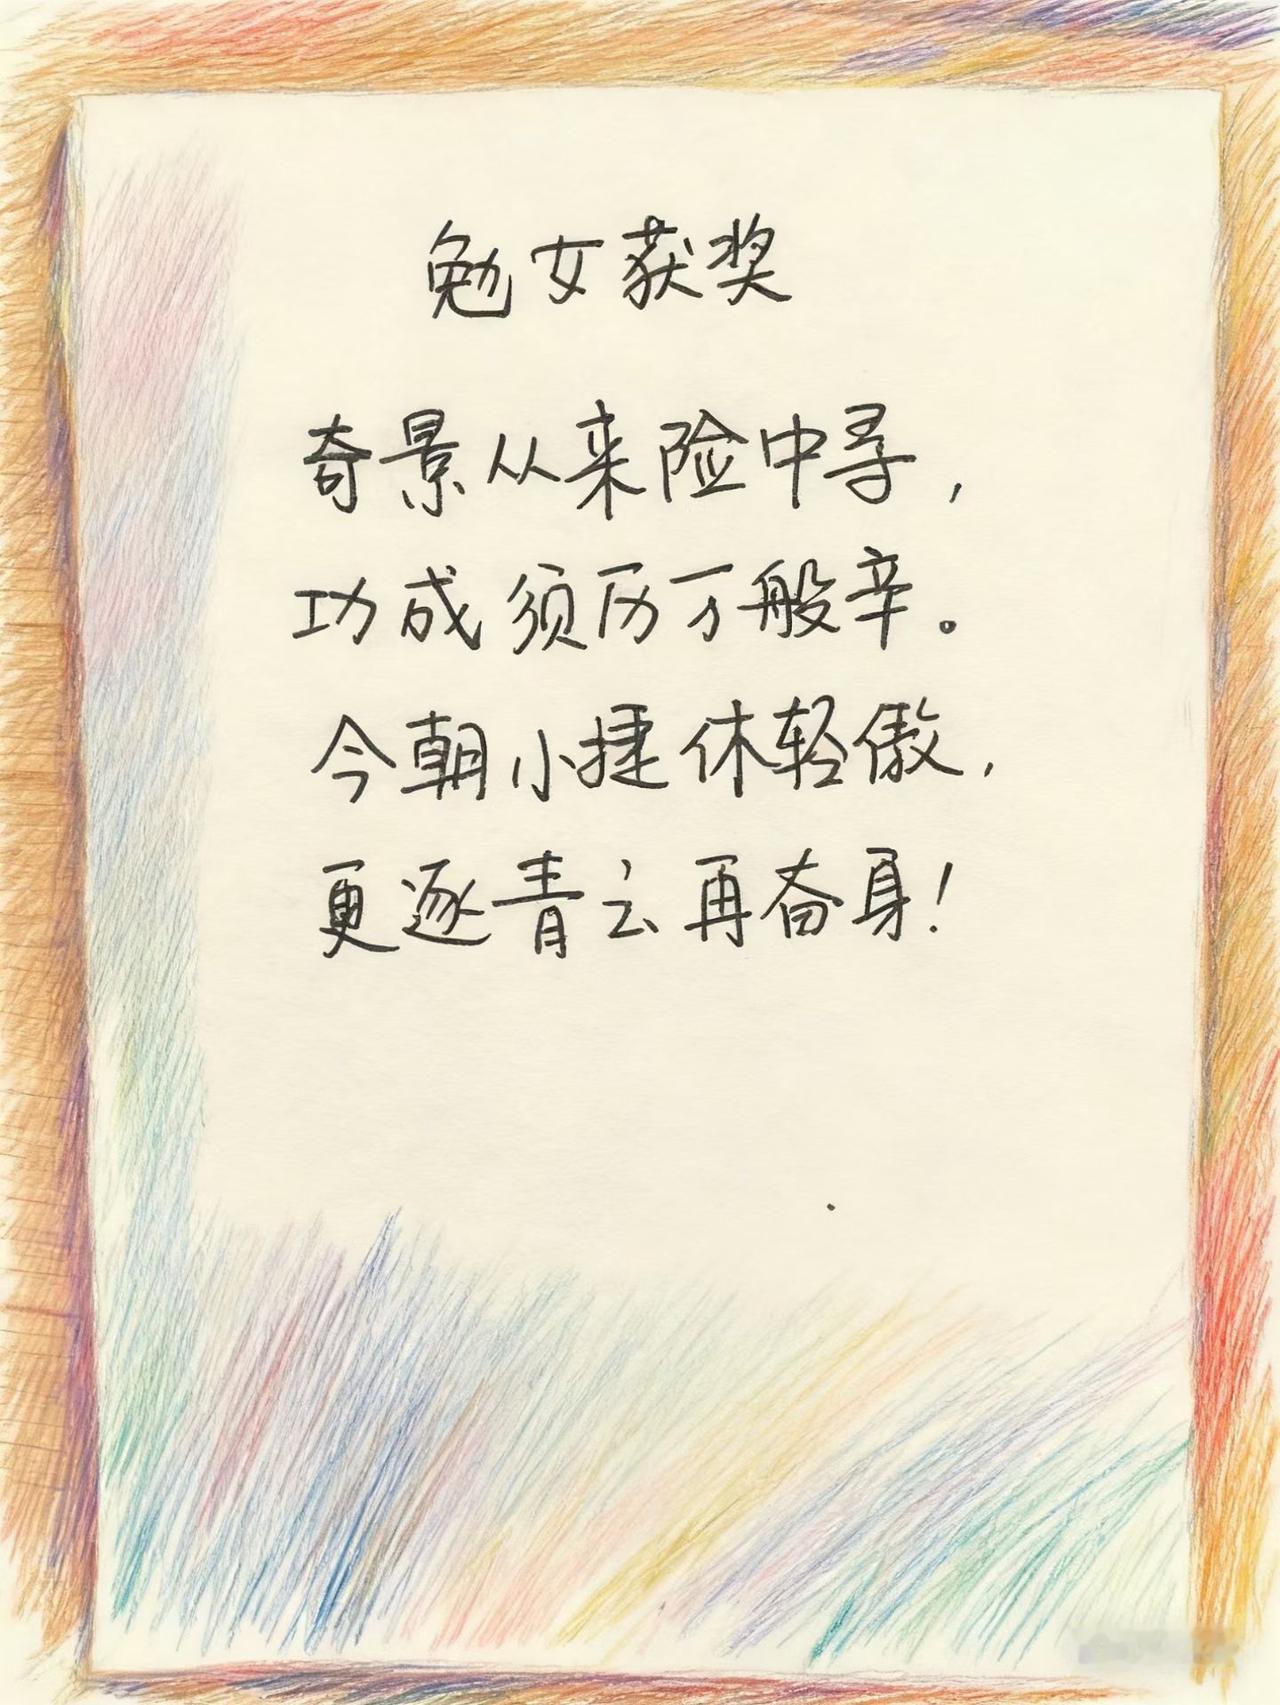 勉女获奖
奇景从来险中寻，
功成须历万般辛。
今朝小捷休轻傲，
更逐青云再奋身！